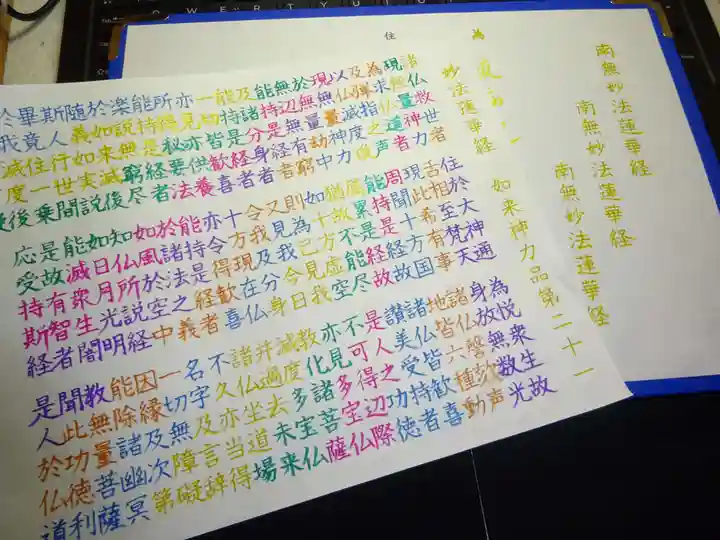 南無妙法蓮華経
南無妙法蓮華経
南無妙法蓮華経
妙法蓮華経 如来神力品第二十一
為
住
諸仏救世者 住於大神通 為悦衆生故
現無量神力 舌相至梵天 身放無数光
為求仏道者 現此希有事 諸仏謦欬声
及弾指之声 周聞十方国 地皆六種動
以仏滅度後 能持是経故 諸仏皆歓喜
現無量神力 嘱累是経故 讃美受持者
於無量劫中 猶故不能尽 是人之功徳
無辺無有窮 如十方虚空 不可得辺際
能持是経者 則為已見我 亦見多宝仏
及諸分身者 又見我今日 教化諸菩薩
能持是経者 令我及分身 滅度多宝仏
一切皆歓喜 十方現在仏 并過去未来
亦見亦供養 亦令得歓喜 諸仏坐道場
所得秘要法 能持是経者 不久亦当得
能持是経者 於諸法之義 名字及言辞
楽説無窮尽 如風於空中 一切無障礙
於如来滅後 知仏所説経 因縁及次第
随義如実説 如日月光明 能除諸幽冥
斯人行世間 能滅衆生闇 教無量菩薩
畢竟住一乗 是故有智者 聞此功徳利
於我滅度後 応受持斯経 是人於仏道